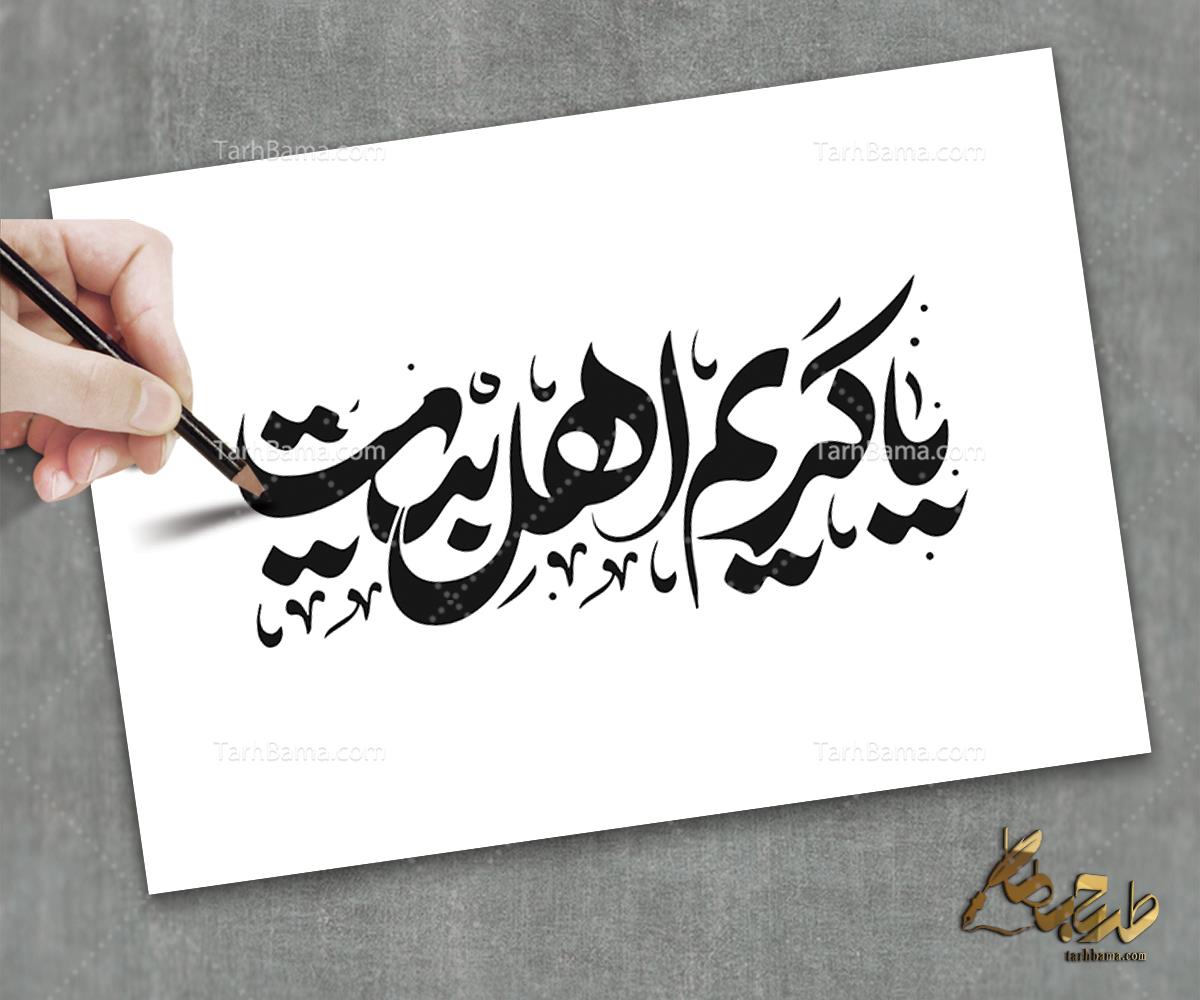 TarhBama.com TarhBama.com
یا کریم اهل بیت
TarhBama.com TarhBama.com
TarhBama.com TarhBama.com
طرح با ما
tarhbama.com